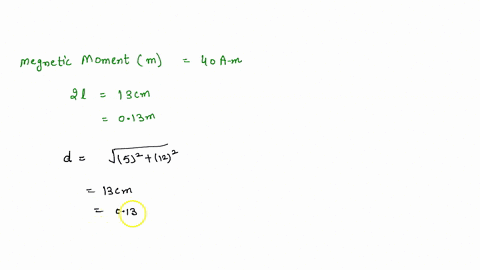 megnetic Moment (m) = 40 A-m
2l = 13cm
= 0.13m
d = √(5)²+(12)²
= 13cm
= 0.13